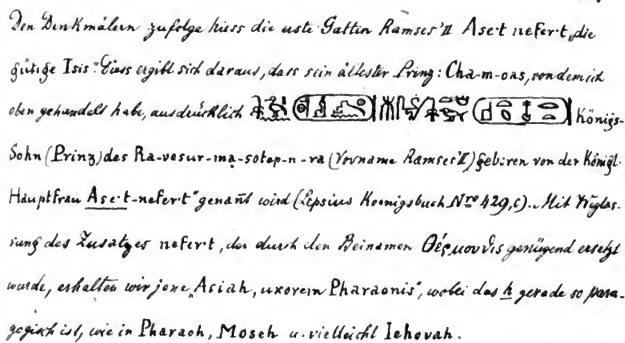 Den Denkmälern zufolge hiess die erste Gattin Ramses' II Ase·t nefer·t „die
gütige Isis“. Diess ergibt sich daraus, dass sein ältester Prinz: Cha-m-oas, von dem ich
oben gehandelt habe, ausdrücklich Königs-
Sohn (Prinz) des Ra-vesur-ma-sotep-n-ra (Vorname Ramses' II) geboren von der Königl.
Hauptfrau Ase·t-nefer·t“ genannt wird (Lepsius Koenigsbuch Nro 429,c). Mit Weglas-
sung des Zusatzes nefer·t, der durch den Beinamen Θέρμουθις genügend ersetzt
wurde, erhalten wir jene „Asiah, uxorem Pharaonis“, wobei das h gerade so para-
gogisch ist, wie in Pharaoh, Moseh u. vielleicht Iehovah.